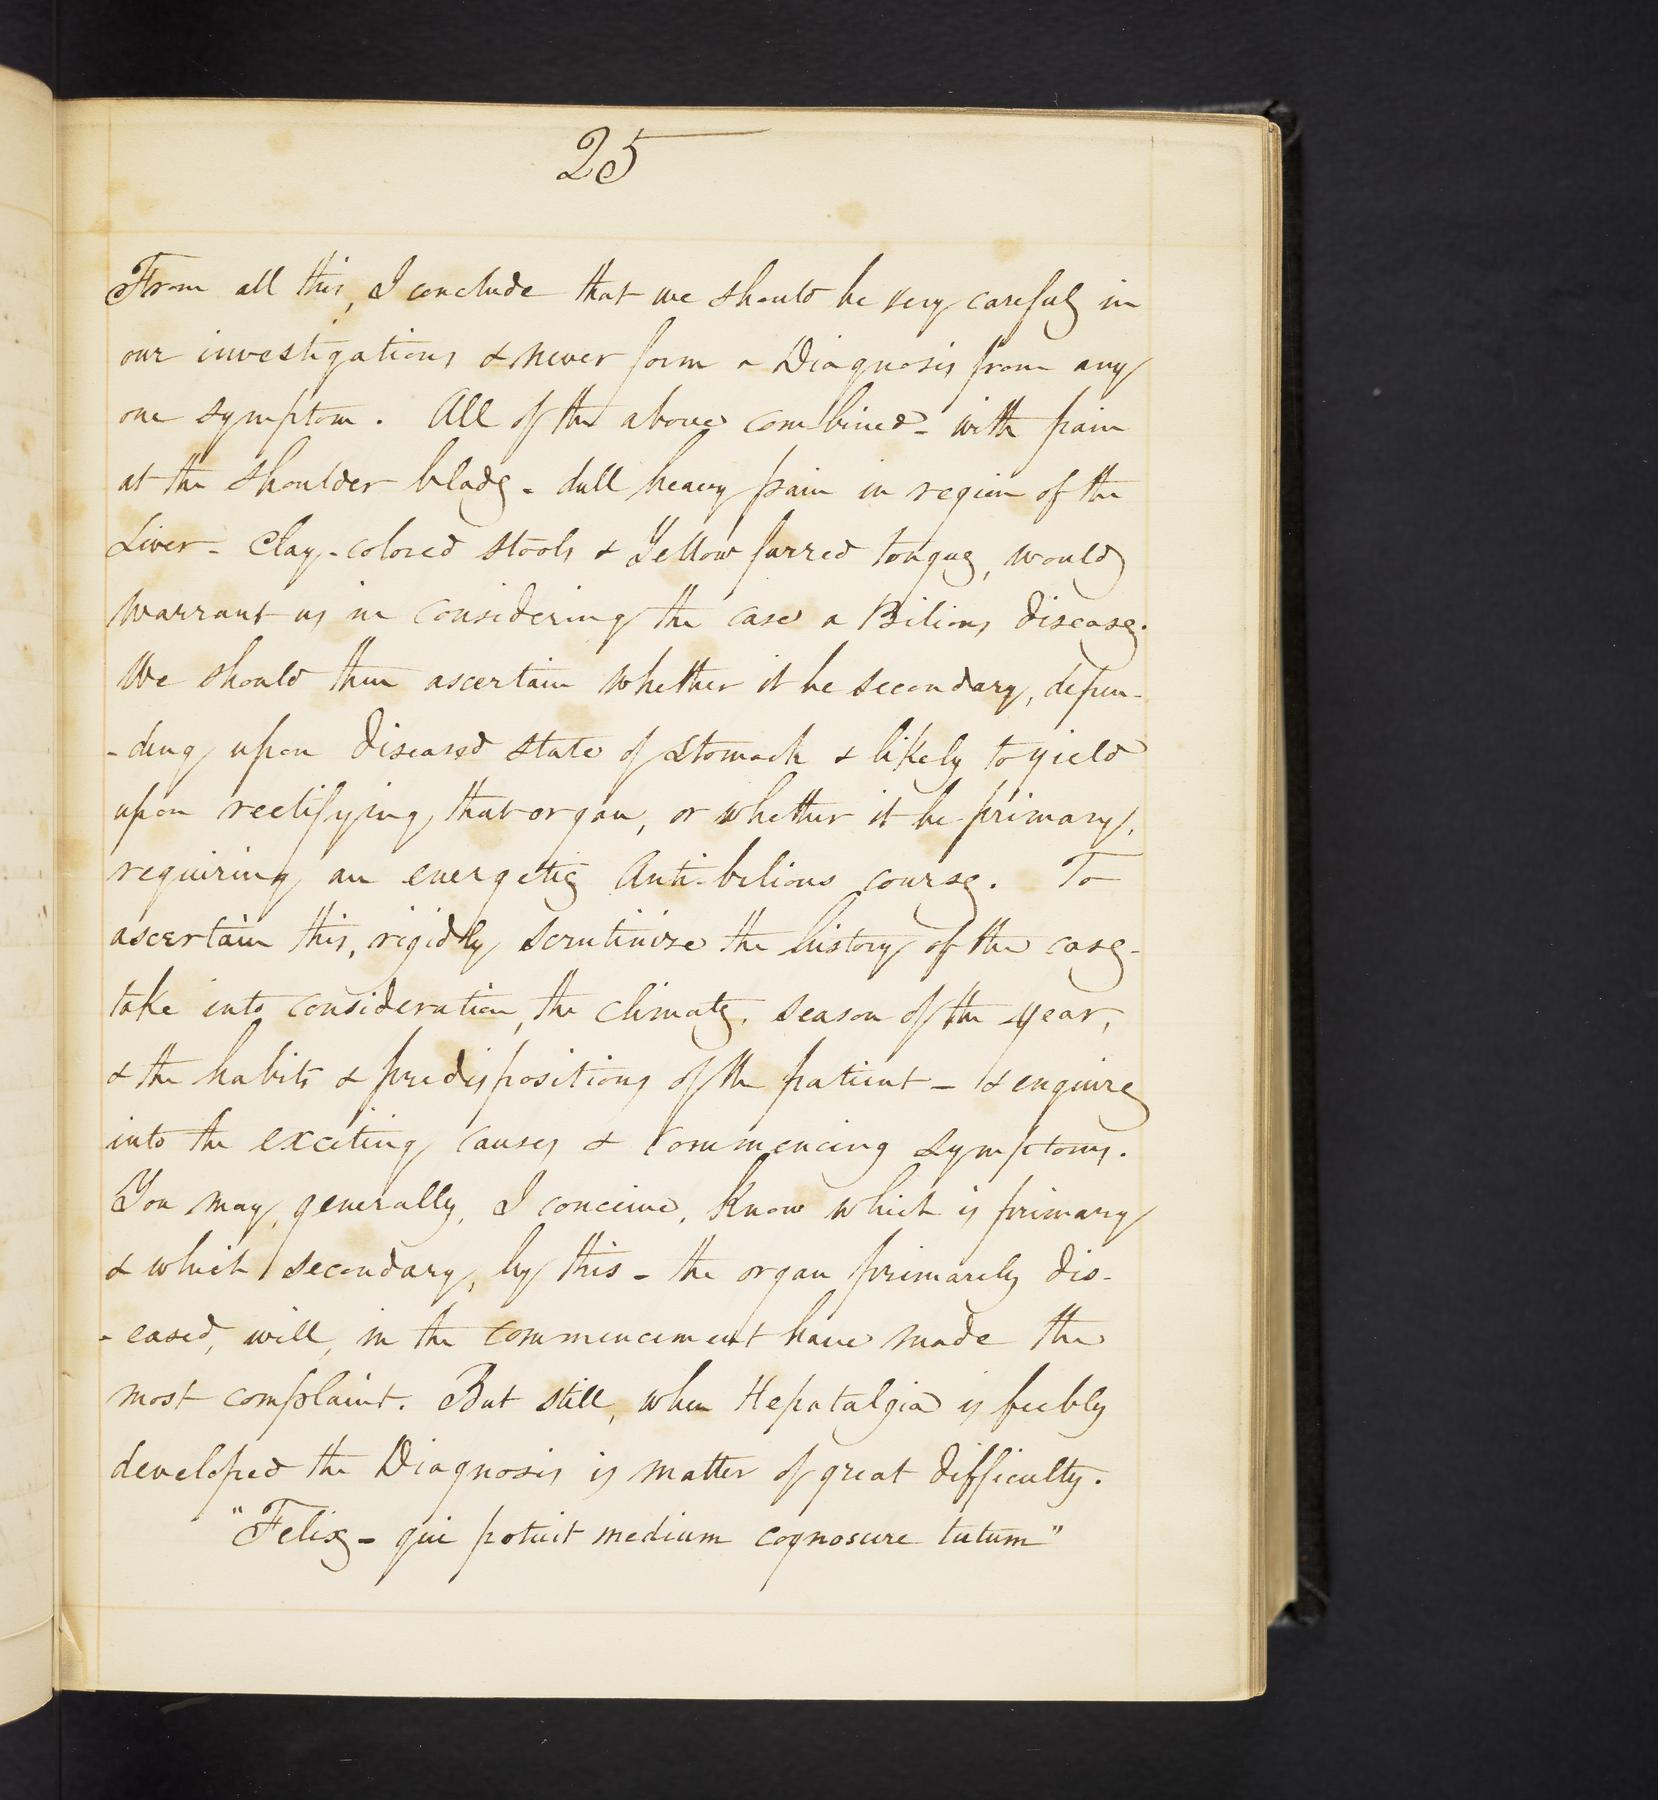 25
From all this, I conclude that we should be very careful in
our investigations & never form a Diagnosis from any
one symptom. All of the above combined - with pain
at the shoulder blade - dull heavy pain in region of the
Liver - Clay-colored stools & Yellow furred tongue, would
warrant us in considering the case a Bilious disease.
We should then ascertain whether it be secondary, depen-
-ding upon diseased state of stomach & likely to yield
upon rectifying that organ, or whether it be primary,
requiring an energetic Anti-bilious course. To
ascertain this, rigidly scrutinize the history of the case -
take into consideration, the climate, season of the year,
& the habits & predispositions of the patient - & enquire
into the exciting causes & commencing symptoms.
You may, generally, I conceive, know which is primary
& which secondary, by this - the organ primarily dis-
-eased, will, in the commencement have made the
most complaint. But still, when Hepatalgia is feebly
developed the Diagnosis is matter of great difficulty.
"Felix - qui potuit medium cognoscere tutum"